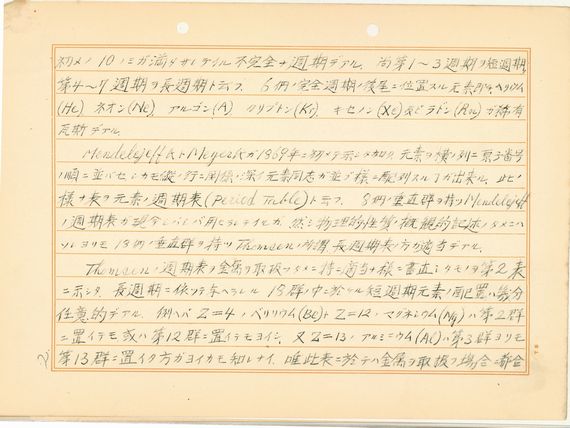 初メノ 10 ノミガ満タサレテイル不完全ナ週期デアル。尚第1~3週期ヲ短週期,
第4~7週期ヲ長週期ト云フ。6個ノ完全週期ノ後尾ニ位置スル元素即チヘリウム
(He) ネオン(Ne), アルゴン(A) クリプトン(Kr), キセノン(Xe)及ビラドン(Rn)ガ稀有
瓦斯デアル。
Mendelejeff 及ト Meyer ガ1869年ニ初メテ示シタ如ク, 元素ヲ横ノ列ニ原子番号
ノ順ニ並バセシカモ縦ノ行ニ関係ノ深イ元素同志ガ並ブ様ニ配列スル事ガ出来ル。此ノ
様ナ表ヲ元素ノ週期表(Period Table)ト云フ。8個ノ垂直群ヲ持ツ Mendelejeff
ノ週期表ガ現今シバシバ用ヒラレテイルガ, 然シ物理的性質ノ概観的記述ノタメニハ
ソレヨリモ 18個ノ垂直群ヲ持ツ Thomsen ノ所謂長週期表ノ方ガ適当デアル。
Thomsen ノ週期表ヲ金属ヲ取扱フタメニ特ニ適当ナ様ニ書直シタモノヲ第2表
ニ示シタ。長週期ニ依ツテ与ヘラレル 18群ノ中ニ於ケル短週期元素ノ配置ハ幾分
任意的デアル。例ヘバ Z=4 ノベリリウム(Be)ト Z=12 ノマグネシウム(Mg)ハ第2群
ニ置イテモ或ハ第12群ニ置イテモヨイシ, 又 Z=13 ノアルミニウム(Al)ハ第3群ヨリモ
第13群ニ置イタ方ガヨイカモ知レナイ。唯此表ニ於テハ金属ヲ取扱フ場合ニ都合